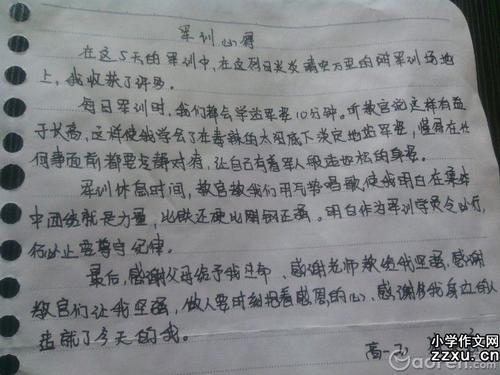 军训心得
在这5天的军训中,在这烈日炎炎晴空万里的军训场地
上,我收获了许多。
每日军训时,我们都会学站军姿10分钟。听教官说这样有益
于长高,这样使我学会了在毒辣的太阳底下淡定地站军姿,懂得在任
何事面前都要冷静对待,让自己有着军人的身姿。
军训休息时间,教官教我们用气势唱歌使我明白在集体
中团结就是力量,比铁还硬比刚钢还强。明白作为军训学员令必行,
行必止要尊守纪律。
最后,感谢父母给予我生命、感谢老师教给我坚强、感谢
教官们让我坚强,做人要时刻抱着感恩的心、感谢我身边的人
造就了今天的我。
高一
小学作文网
zzxu.cn
aoren.com